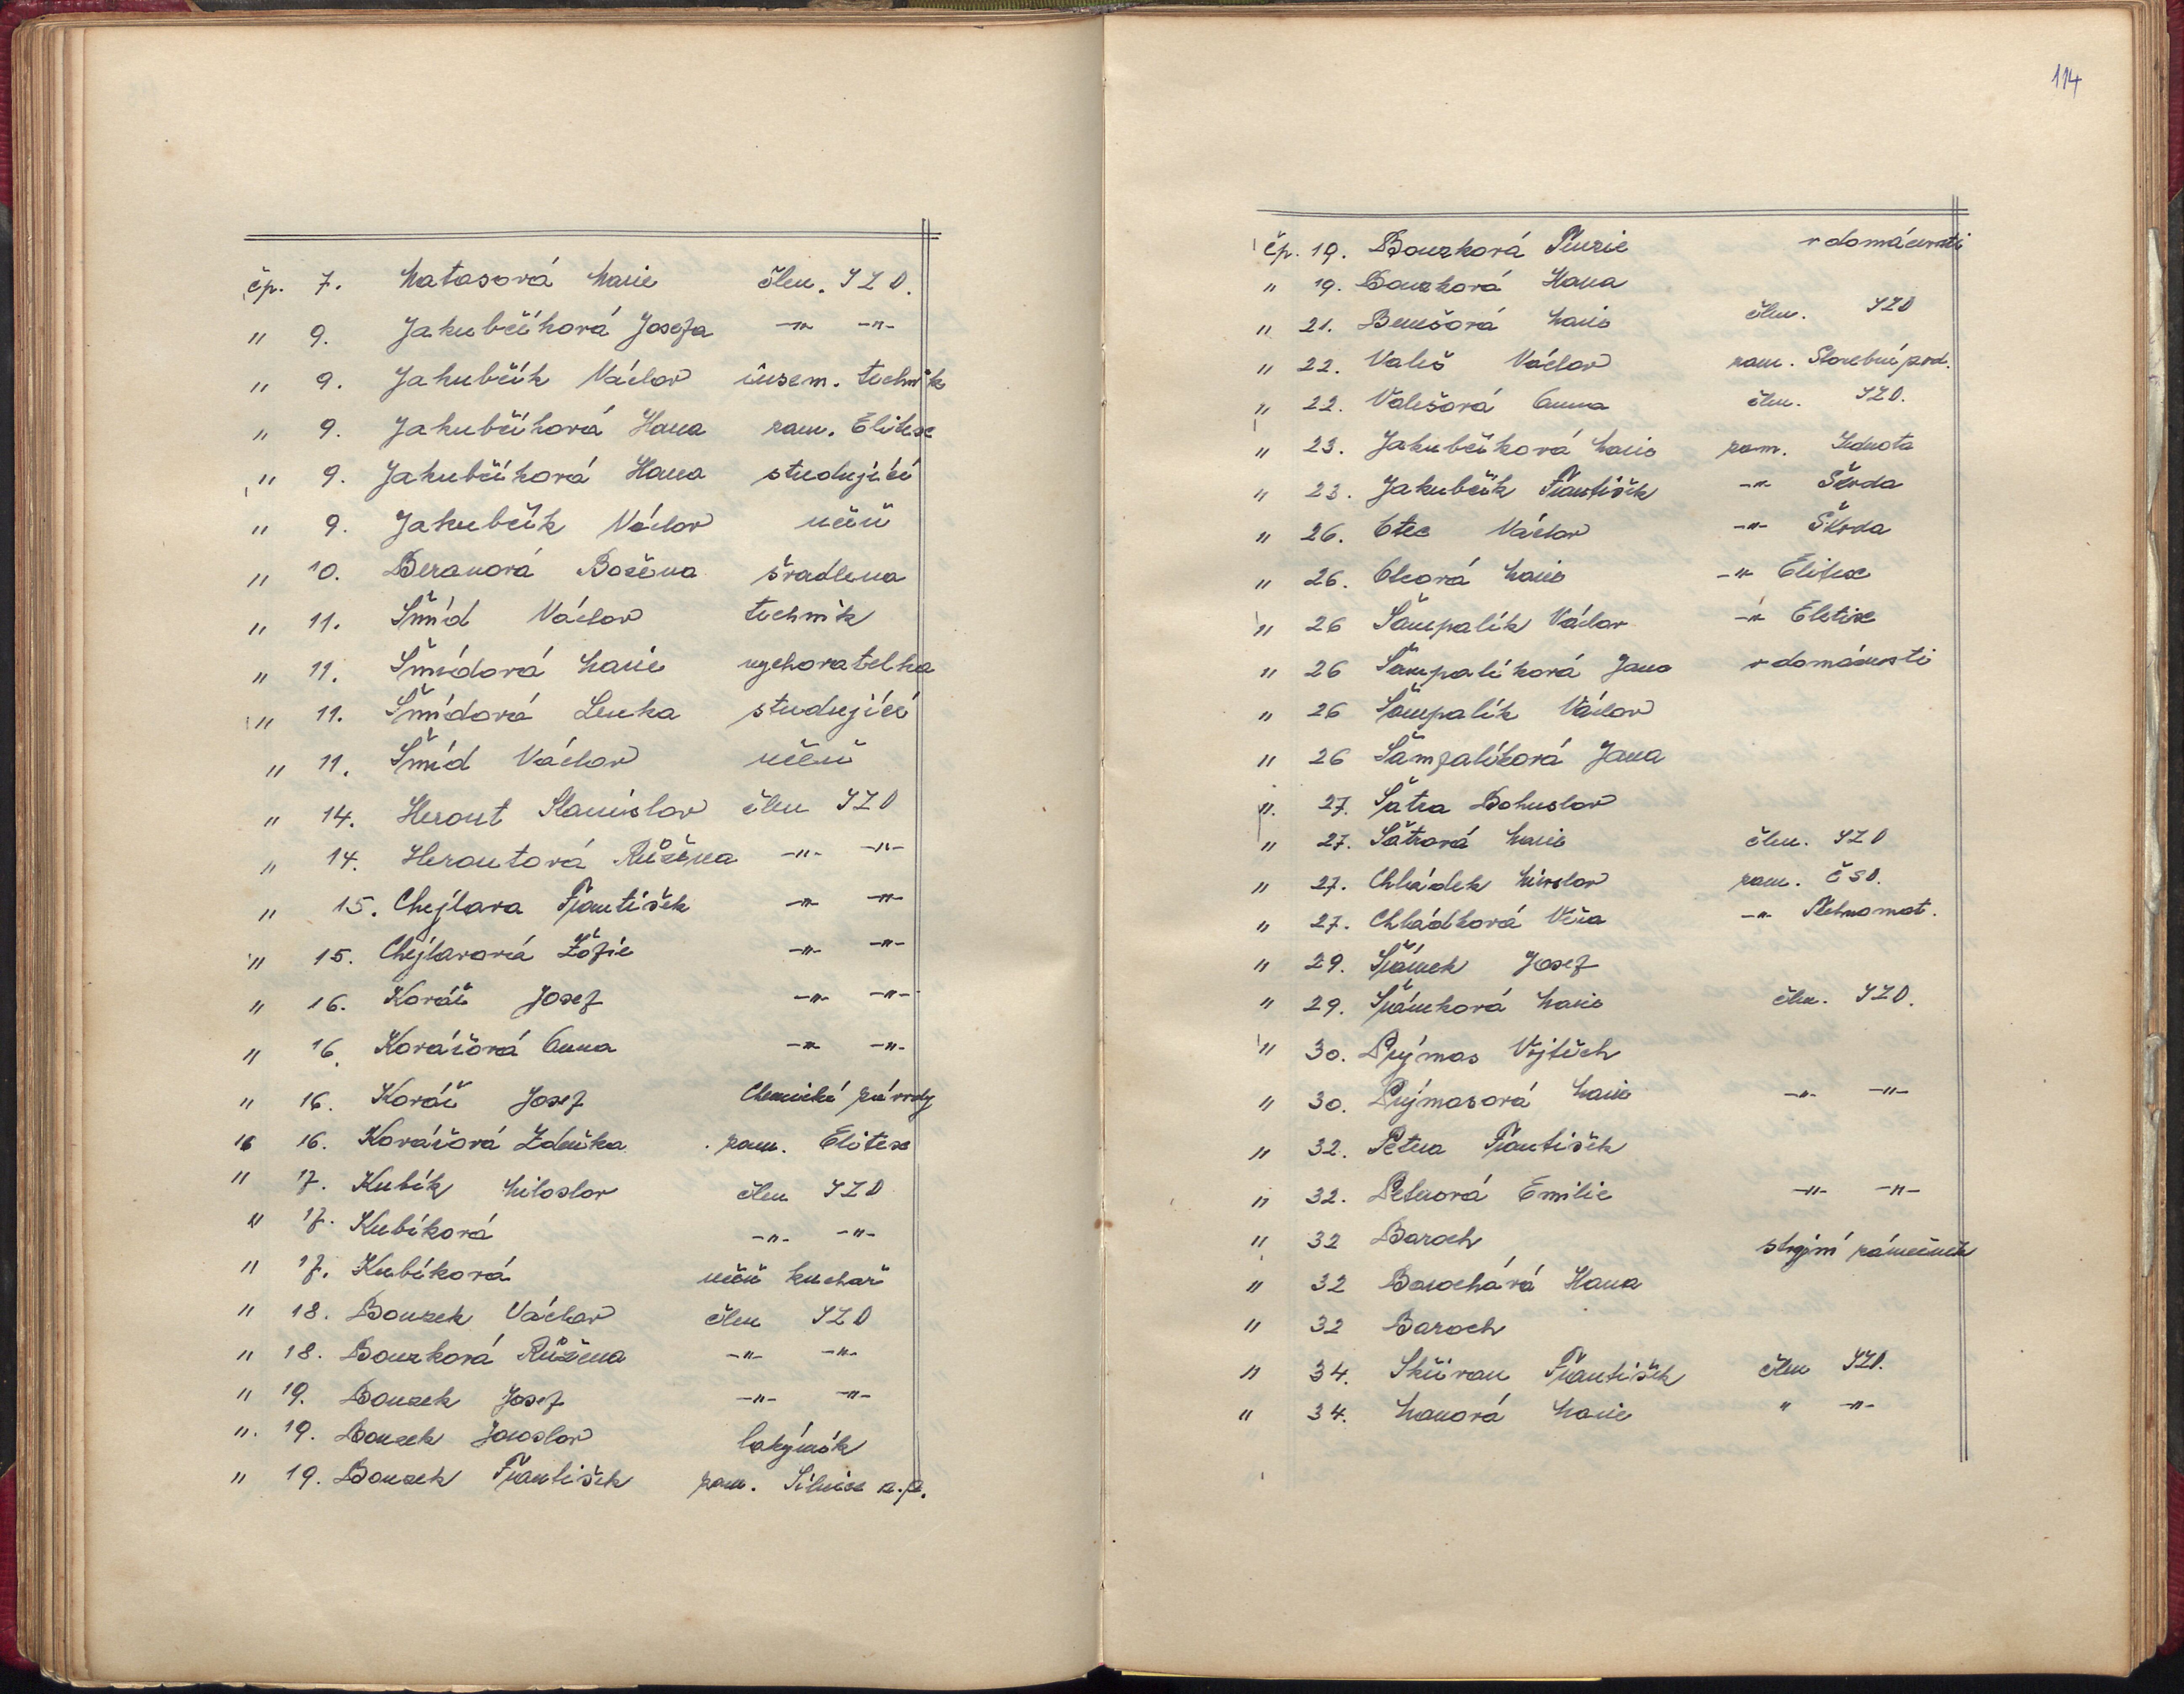 čp. 7. Matasová Marie člen. JZD.
" 9. Jakubčíková Josefa -"- -"-
" 9. Jakubčík Václav insem. technik
" 9. Jakubčíková Hana zam. Elitex
" 9. Jakubčíková Hana studující
" 9. Jakubčík Václav učeň
" 10. Beranová Božena švadlena
" 11. Šmíd Václav technik
" 11. Šmídová Marie vychovatelka
" 11. Šmídová Lenka studující
" 11. Šmíd Václav učeň
" 14. Herout Stanislav člen JZD
" 14. Heroutová Růžena -"- -"-
" 15. Chejlava František -"- -"-
" 15. Chejlavová Žofie -"- -"-
" 16. Kovář Josef -"- -"-
" 16. Kovářová Anna -"- -"-
" 16. Kovář Josef Chemické závody
16 16. Kovářová Zdeňka zam. Elitex
" 17. Kubík Miloslav člen JZD
" 17. Kubíková -"- -"-
" 17. Kubíková učeň kuchař
" 18. Bouzek Václav člen JZD
" 18. Bouzková Růžena -"- -"-
" 19. Bouzek Josef -"- -"-
". 19. Bouzek Jaroslav
" 19. Bouzek František zam. Silnice n.p.
114
čp. 19. Bouzková v domácnosti
" 19. Bouzková Hana
" 21. Benešová Marie člen. JZD
" 22. Valeš Václav zam. Stavební pod.
" 22. Valešová Anna člen. JZD.
" 23. Jakubčíková Marie zam. Jednota
" 23. Jakubčík František -"- Škoda
" 26. Otec Václav -"- Škoda
" 26. Otcová Marie -"- Elitex
" 26 Šampalík Václav -"- Eletix
" 26 Šampalíková Jana v domácnosti
" 26 Šampalík Václav
" 26 Šampalíková Jana
". 27. Šatra Bohuslav
" 27. Šatrová Marie člen. JZD
" 27. Chládek Miroslav zam. ČSD.
" 27. Chládková Věra -"-
" 29. Šrámek Josef
" 29. Šrámková Marie člen. JZD.
" 30. Prýmas Vojtěch
" 30. Prýmasová Marie -"- -"-
" 32. Petna František
" 32. Petnová Emilie -"- -"-
" 32 Baroch strojní zámečník
" 32 Barochová Hana
" 32 Baroch
" 34. Skřivan František člen JZD.
" 34. Marie " -"-